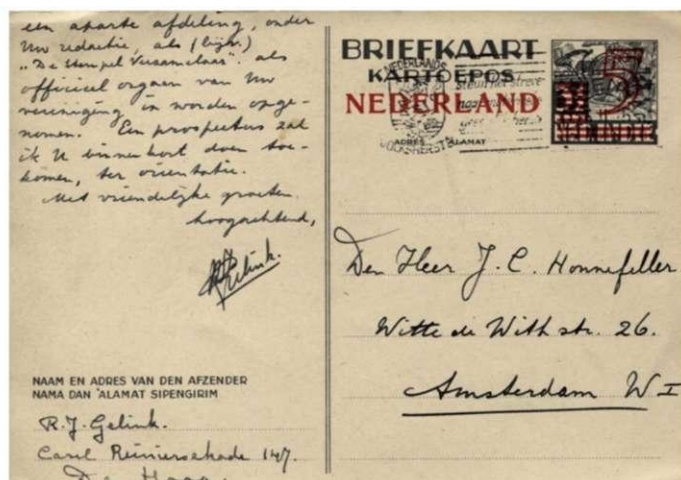 een aparte afdeling, onder
Uw redactie, als (bijv.)
"De Stempel Verzamelaar" als
officieel orgaan van Uw
vereniging in worden opge-
nomen. Een prospectus zal
ik U binnenkort doen toe-
komen, ter orientatie.
Met vriendelijke groeten.
hoogachtend,
RJGelink.
NAAM EN ADRES VAN DEN AFZENDER
NAMA DAN ALAMAT SIPENGIRIM
R.J. Gelink.
Carel Reinierszkade 147.
Den Haag
BRIEFKAART
KARTOEPOS
NEDERLAND
ADRES ALAMAT
NEDERLANDS
VOLKSHERSTEL
steunt het streven
naar
5
NED. INDIË
Den Heer J. C. Honnefeller
Witte de Withstr. 26.
Amsterdam W I